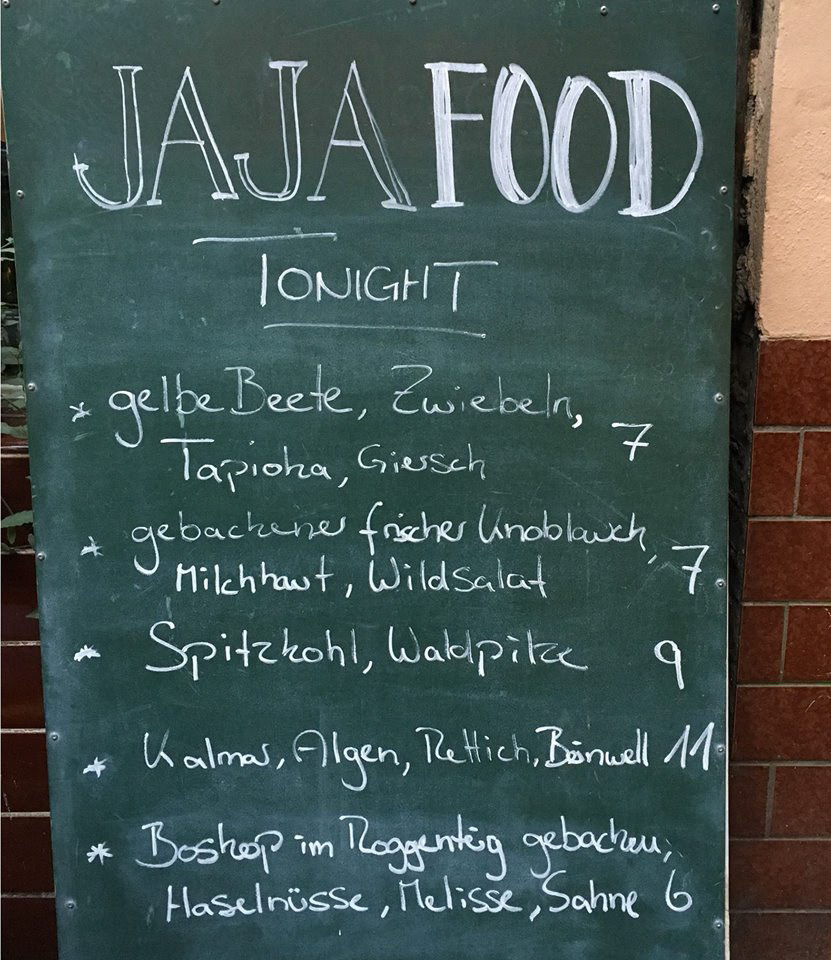 JAJA FOOD
TONIGHT
* gelbe Beete, Zwiebeln,
Tapioka, Giersch 7
* gebackener frischer Knoblauch,
Milchhaut, Wildsalat 7
* Spitzkohl, Waldpilze 9
* Kalmar, Algen, Rettich, 11
* Boskop im Roggenteig gebacken,
Haselnüsse, Melisse, Sahne 6